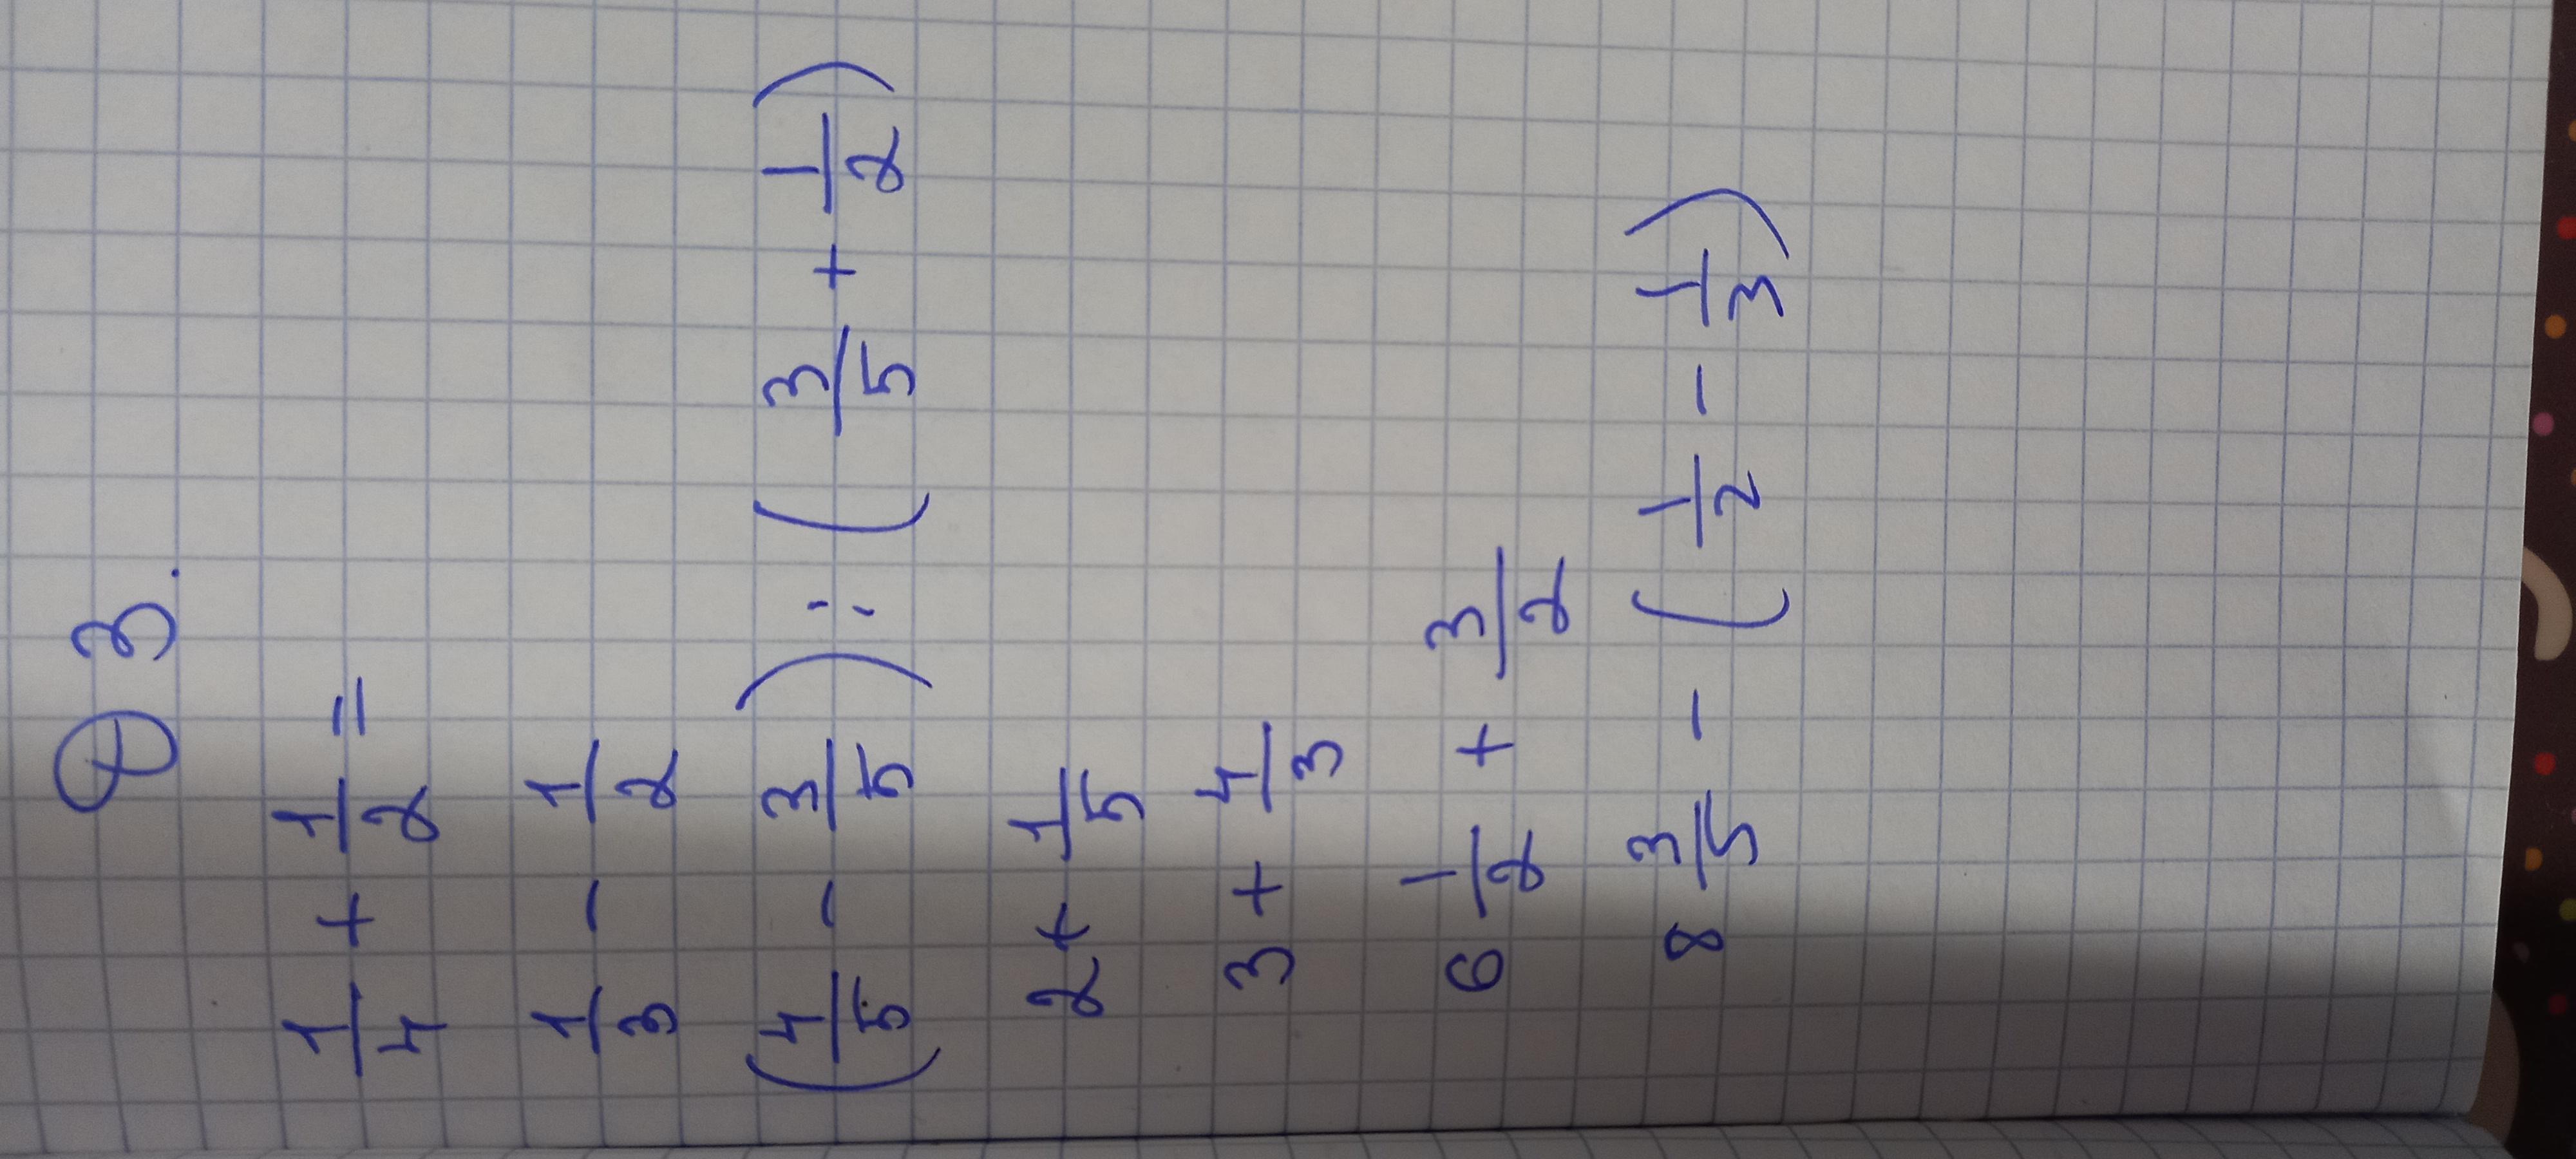 3.
1/4 + 1/2 =
1/3 - 1/2
(4/5 - 3/5) : (3/5 + 1/2)
2 + 1/5
3 + 4/3
6 1/2 + 3/2
8 3/5 - (1/2 - 1/3)